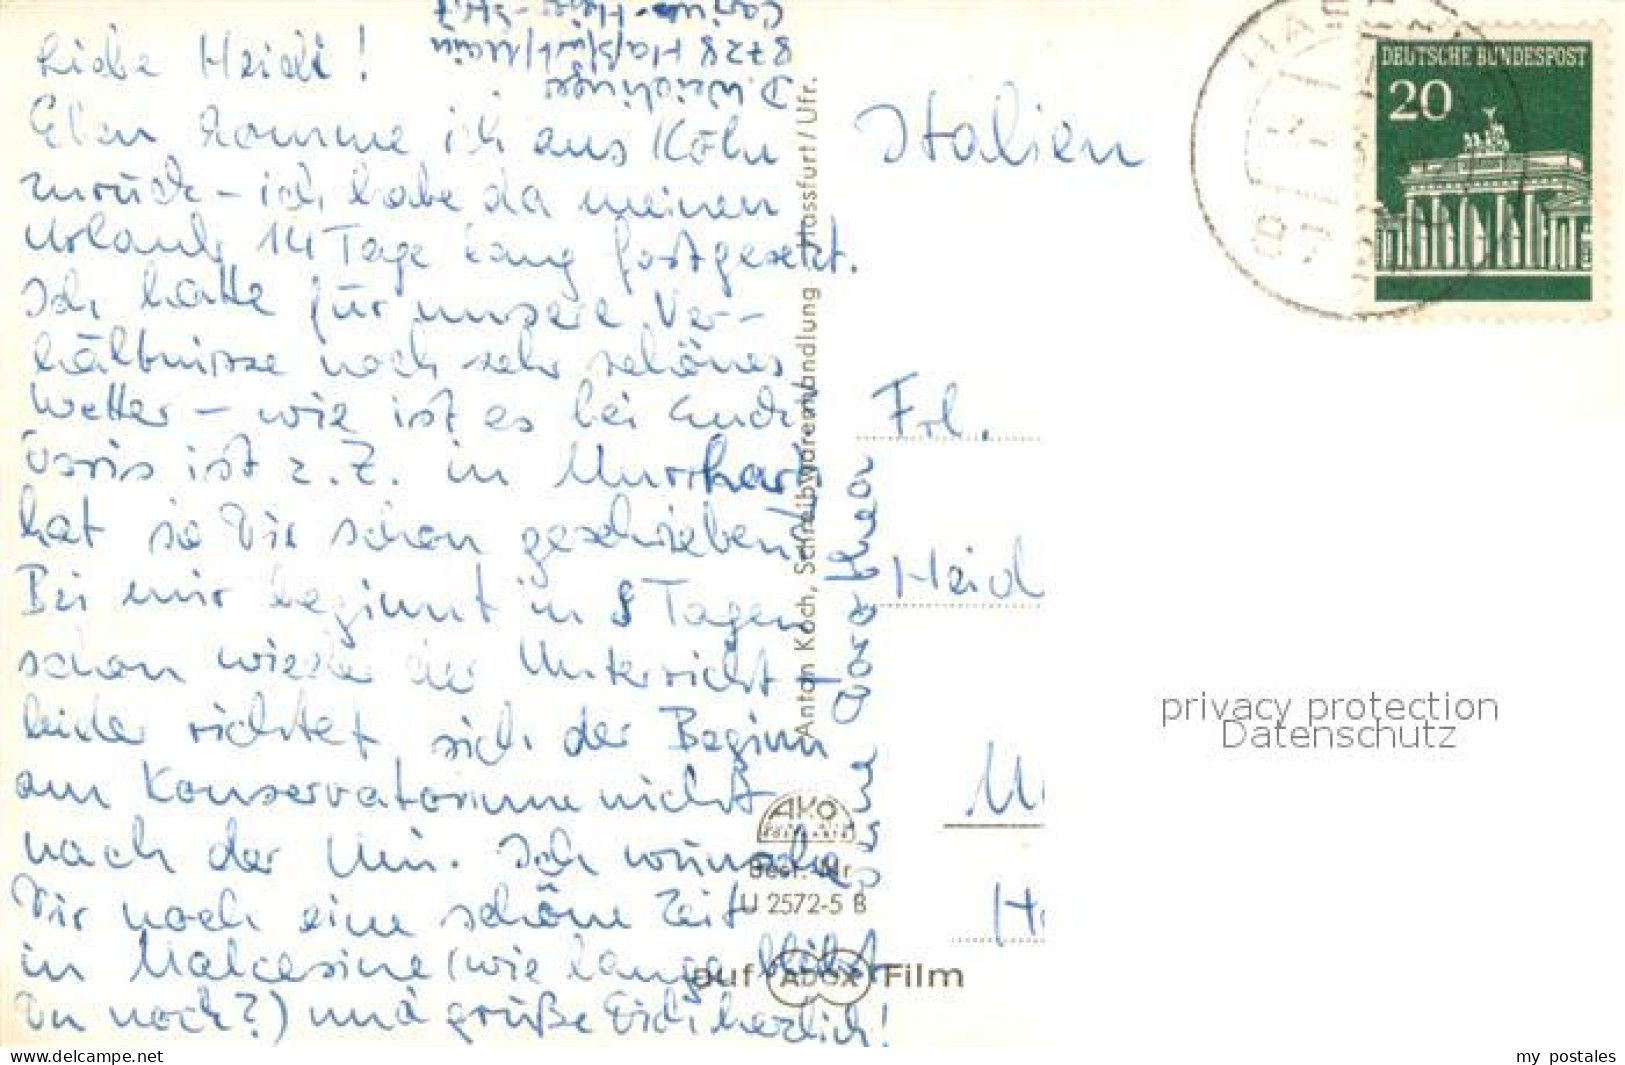 Liebe Heidi!
Eben komme ich aus Köln
zurück - ich habe da meinen
Urlaub 14 Tage lang fortgesetzt.
Ich hatte für unsere Ver-
hältnisse noch sehr schönes
Wetter - wie ist es bei Euch?
ist z. Z. in Murrhardt
hat sie Dir schon geschrieben?
Bei mir beginnt in 8 Tagen
schon wieder der Unterricht -
leider richtet sich der Beginn
am Konservatorium nicht
nach der Uni. Ich wünsche
Dir noch eine schöne Zeit
in Malcesine (wie lange bleibst
Du noch?) und grüße Dich herzlich!
8728 Haßfurt/Main
Anton Koch, Schreibwarenhandlung Hassfurt/Ufr.
AKO
Best.-Nr.
U 2572-5 B
auf ADOX Film
Italien
DEUTSCHE BUNDESPOST
20
Frl.
Heid
privacy protection
Datenschutz
www.delcampe.net
my_postales